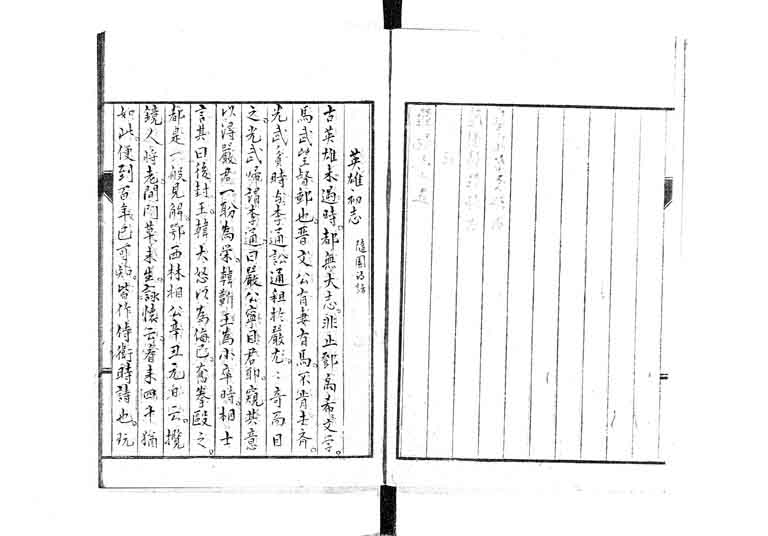 英雄初志 隨園詩話
古英雄未遇時。都無大志。非止鄧禹希文学。
馬武望督郵也。晋文公有妻有馬。不肯去齊。
光武貧時与李通訟逋租於嚴尤。：奇而目
之光武帰謂李通曰嚴公寧目君耶。窺其意
以得嚴君一盼為栄。韓蘄王為小卒時。相士
言其日後封王韓大怒以為侮已奮拳毆之。
都是一般見解。鄂西林相公辛丑元日云。攬
鏡人將老。開門草未生。詠懷云。看来四十猶
如此。便到百年已可知。皆作侍衛時詩也。玩